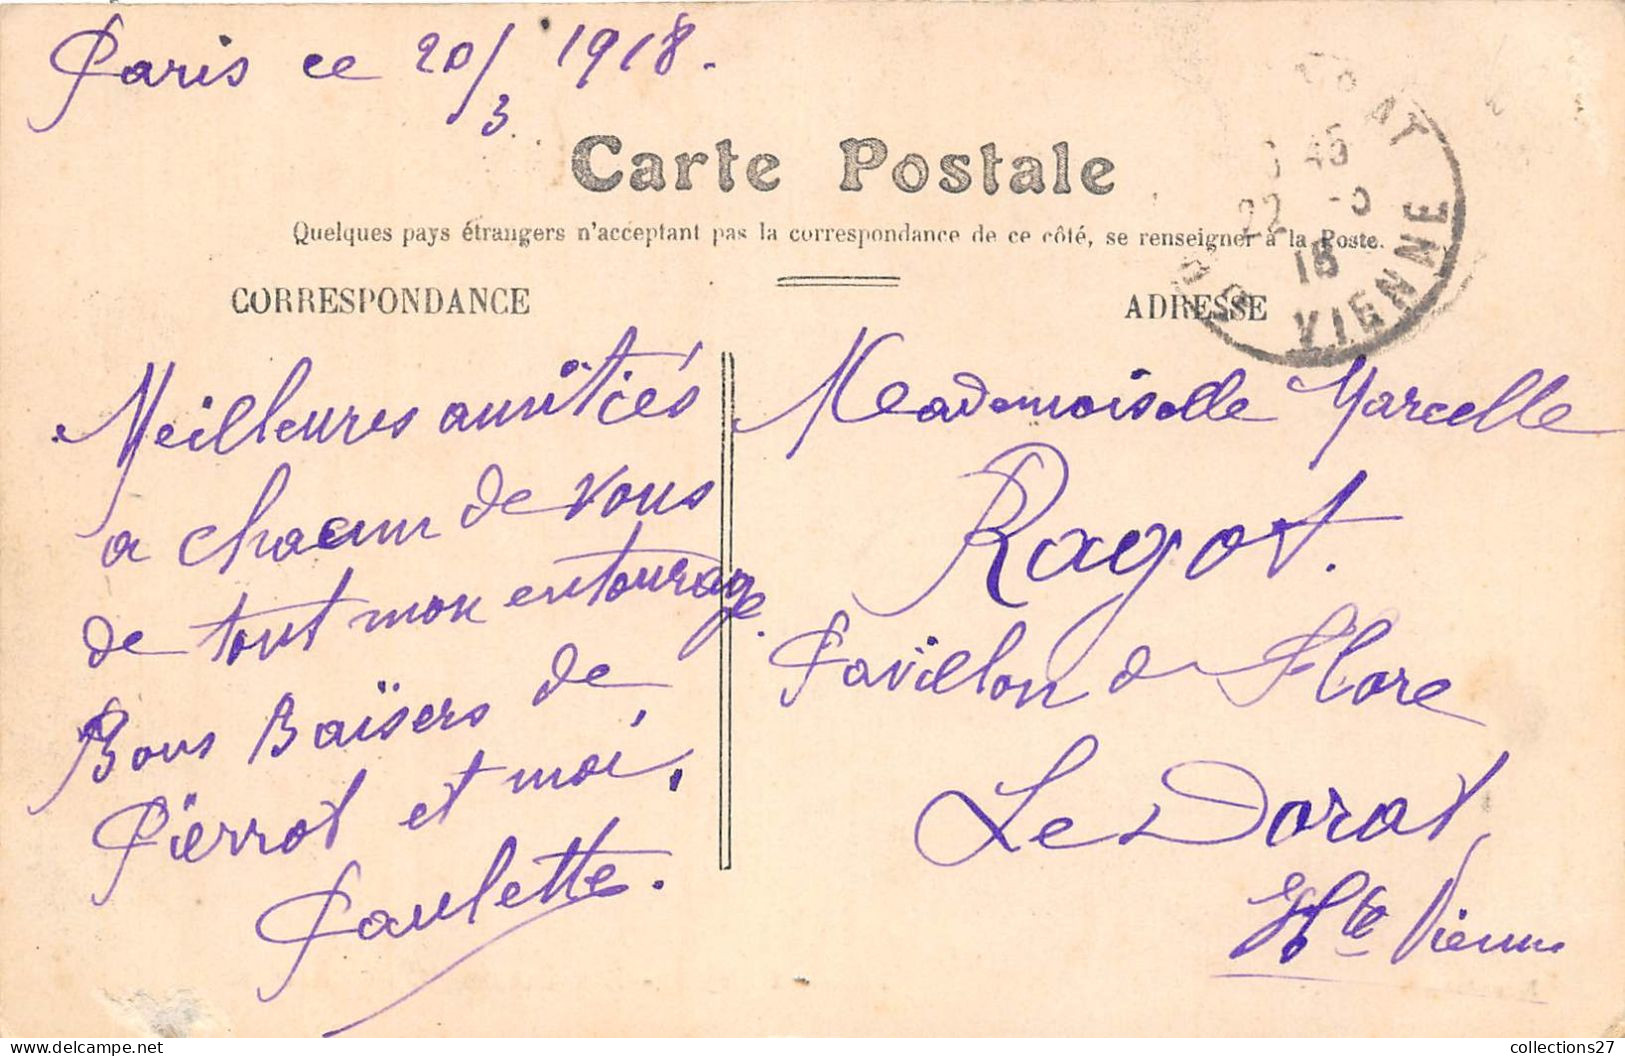 Paris ce 20/3 1918.
Carte Postale
Quelques pays étrangers n'acceptent pas la correspondance de ce côté, se renseigner à la Poste.
CORRESPONDANCE
Meilleures amitiés
a chacun de vous
de tout mon entourage.
Bons Baïsers de
Pierrot et moi.
Paulette.
ADRESSE
Mademoiselle Marcelle
Ragot.
Pavillon de Flore
Le Dorat,
Hte Vienne
45
22 -3
18
VIENNE
collections27